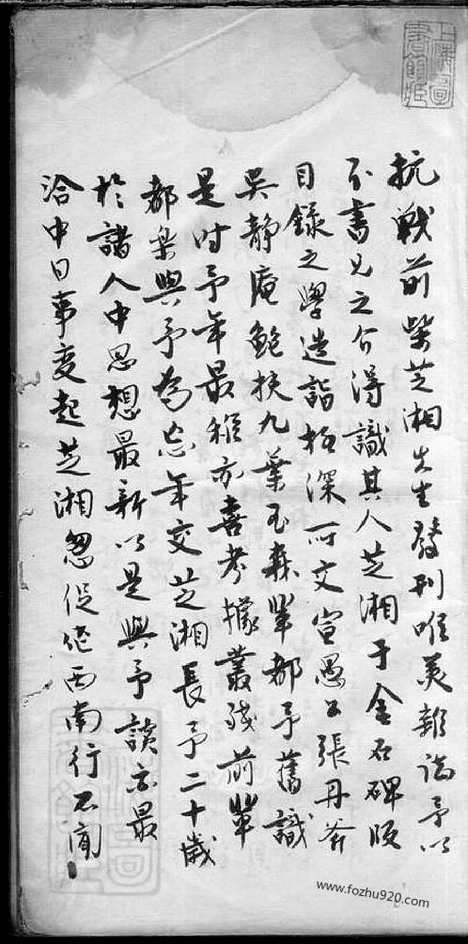 抗戰前柴芝湘先生發刊唯美雜誌予以
不書兄之介得識其人芝湘于金石碑版
目錄之學造詣極深所交宣愚公張丹斧
吳靜庵鮑扶九葉玉森輩都予舊識
是時予年最稚亦喜考據叢殘前輩
都樂與予為忘年交芝湘長予二十歲
於諸人中思想最新以是與予讀亦最
洽中日事變起芝湘怱促作西南行不聞
上海圖書館藏
www.fozhu920.com